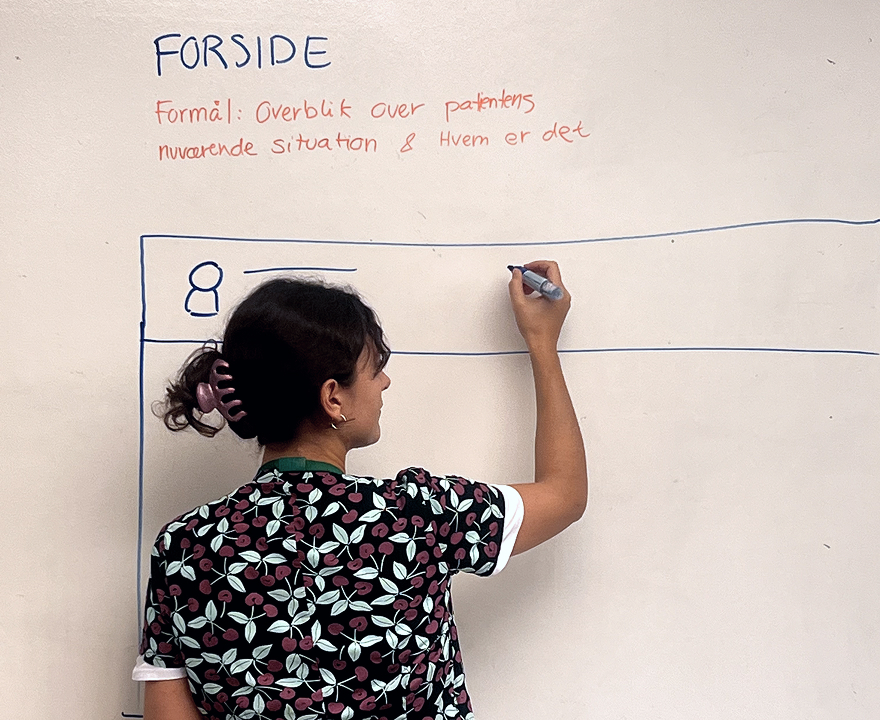 FORSIDE
Formål: Overblik over patientens
nuværende situation & Hvem er det